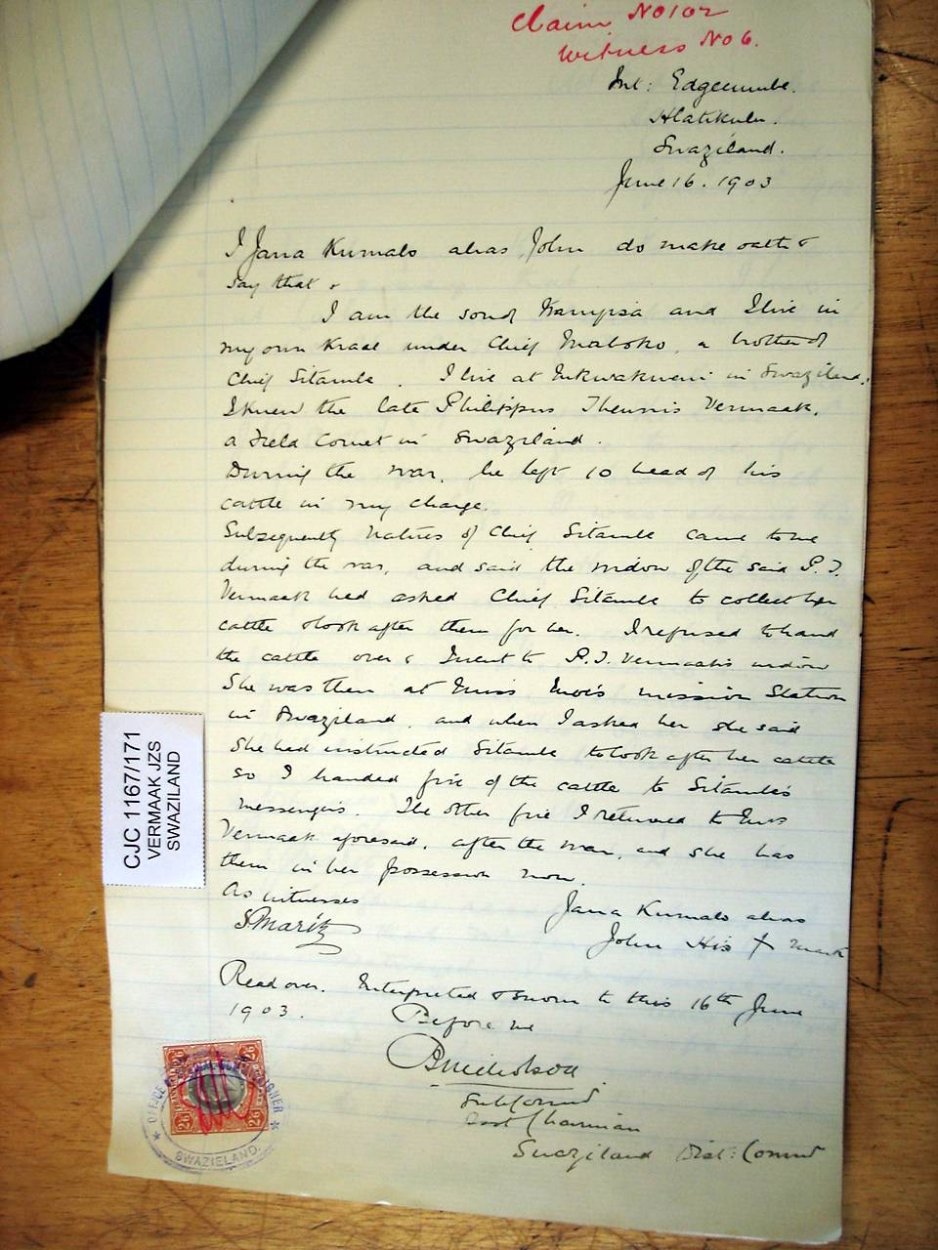 Claim No 102
Witness No 6.
Mt: Edgecumbe.
Hlatikulu.
Swaziland.
June 16. 1903
I Jana Kumalo alias John do make oath &
say that :
I am the son of Kampisa and I live in
my own Kraal under Chief Maboko, a brother of
Chief Sitambe. I live at in Swaziland.
I knew the late Philippus Theunis Vermaak,
a Field Cornet in Swaziland.
During the war, he left 10 head of his
cattle in my charge.
Subsequently natives of Chief Sitambe came to me
during the war, and said the widow of the said P.T.
Vermaak had asked Chief Sitambe to collect her
cattle & look after them for her. I refused to hand
the cattle over & I went to P.T. Vermaak's widow
She was then at Miss Mission Station
in Swaziland, and when I asked her she said
She had instructed Sitambe to look after her cattle
so I handed five of the cattle to Sitambe's
messengers. The other five I returned to Mrs
Vermaak aforesaid, after the war, and she has
them in her possession now.
As witnesses
S Maritz
Jana Kumalo alias
John His X mark
Read over. Interpreted & sworn to this 16th June
1903.
Before me
B Nicholson
Sub Commr
Asst Chairman
Swaziland Dist: Commr
CJC 1167/171
VERMAAK JZS
SWAZILAND
2/6
2/6
SWAZIELAND.